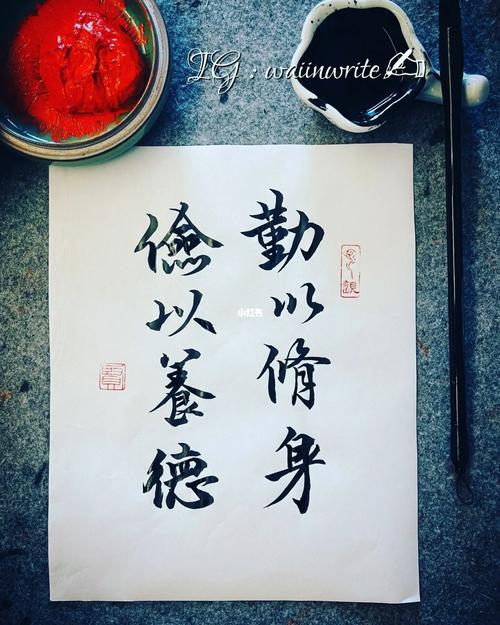 IG : waiinwrite
勤以脩身
儉以養德
小红书